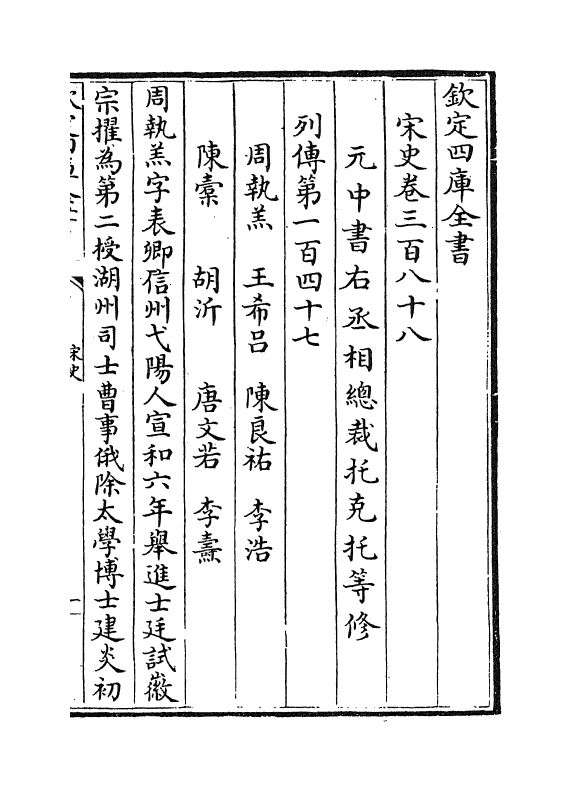 欽定四庫全書
宋史卷三百八十八
元中書右丞相總裁托克托等修
列傳第一百四十七
周執羔 王希呂 陳良祐 李浩
陳槖 胡沂 唐文若 李燾
周執羔字表卿信州弋陽人宣和六年舉進士廷試徽
宗擢為第二授湖州司士曹事俄除太學博士建炎初
宋史
一